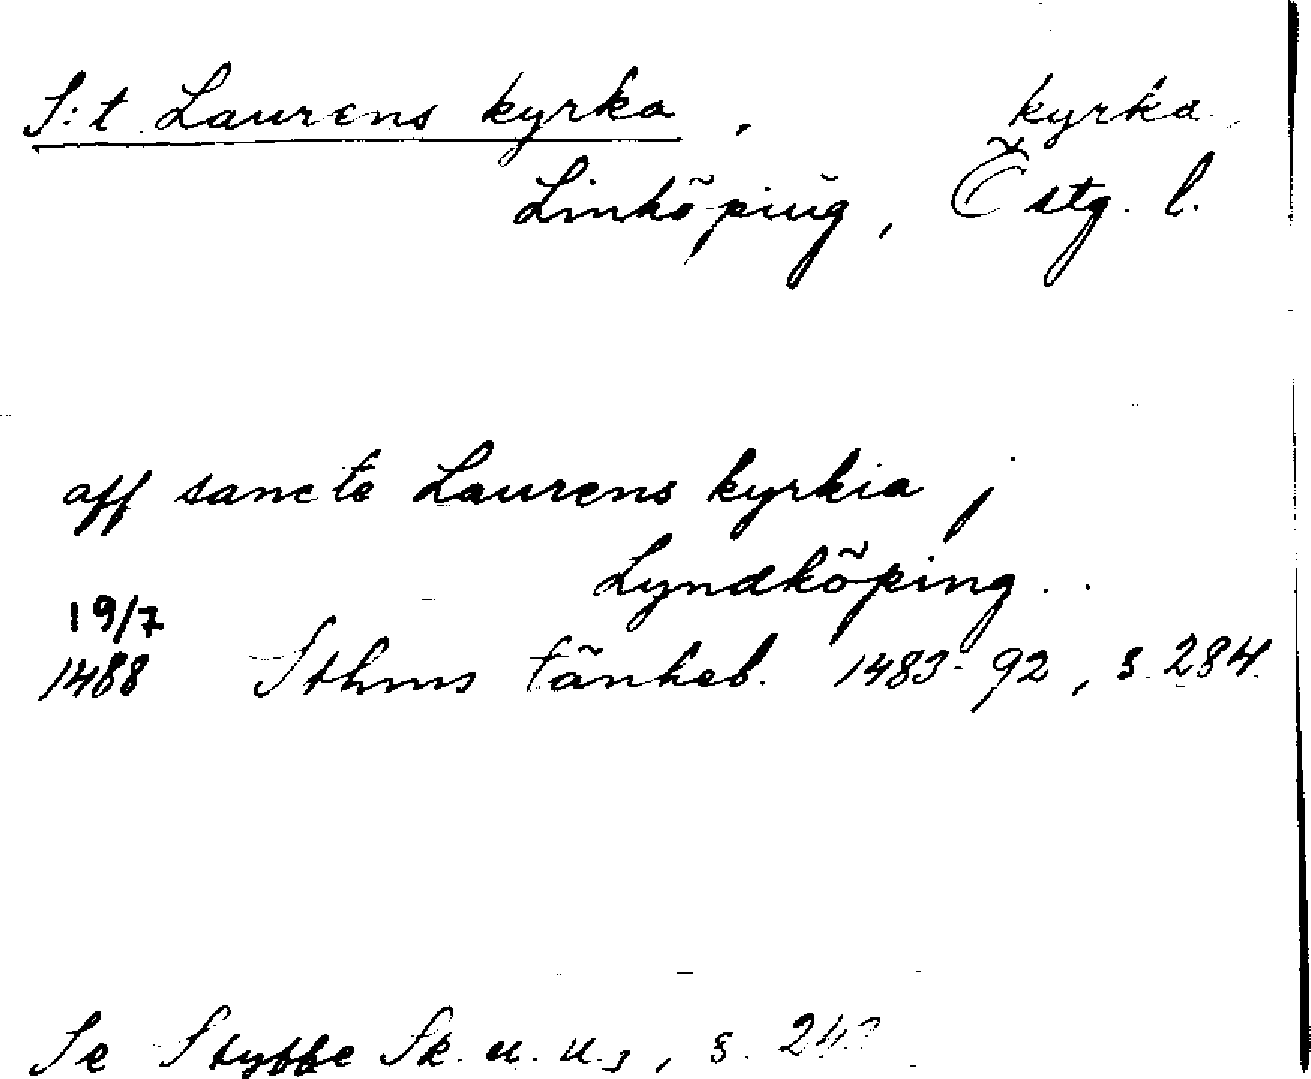 S:t Laurens kyrka, kyrka,
Linköping, Östg. l.
aff sancte Laurens kyrkia j
Lyndköping..
19/7
1488 Sthms tänkeb. 1483-92, s. 284.
Se Styffe Sk. u. u.s, s.